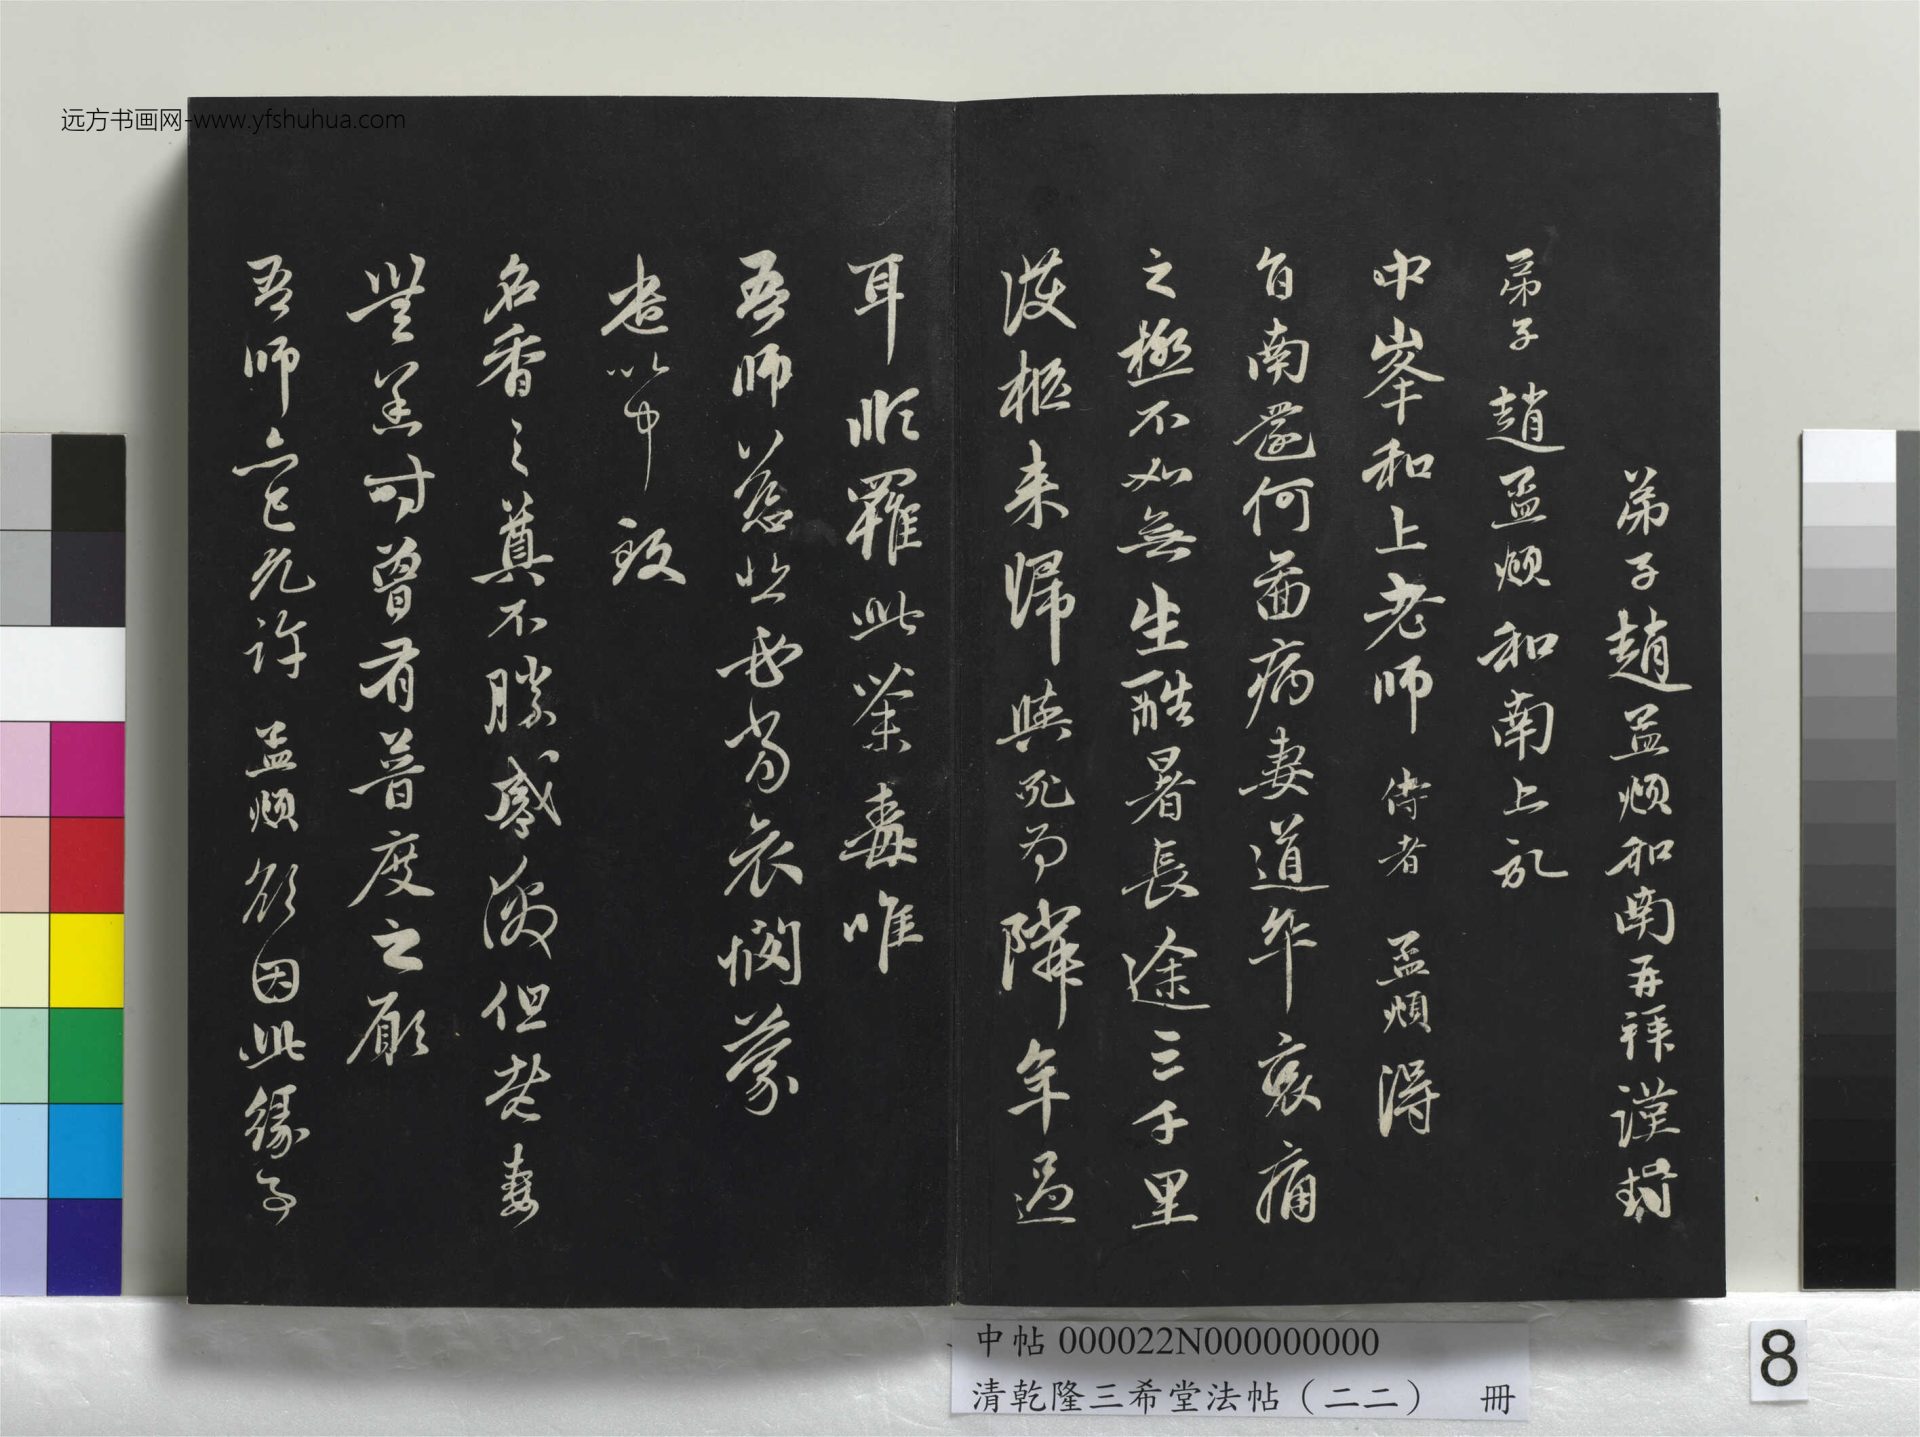 弟子趙孟頫和南再拜謹封
弟子趙孟頫和南上記
中峯和上老師侍者孟頫得
旨南還何圖病妻道卒哀痛
之極不如無生酷暑長途三千里
護柩來歸與死為隣年過
耳順罹此荼毒唯
吾師慈悲必當哀憫蒙
遣以中致
名香之奠不勝感激但老妻
無恙時曾有普度之願
吾師亦已允許孟頫欲因此緣事
远方书画网-www.yfshuhua.com
中帖 000022N000000000
清乾隆三希堂法帖（二二） 冊
8